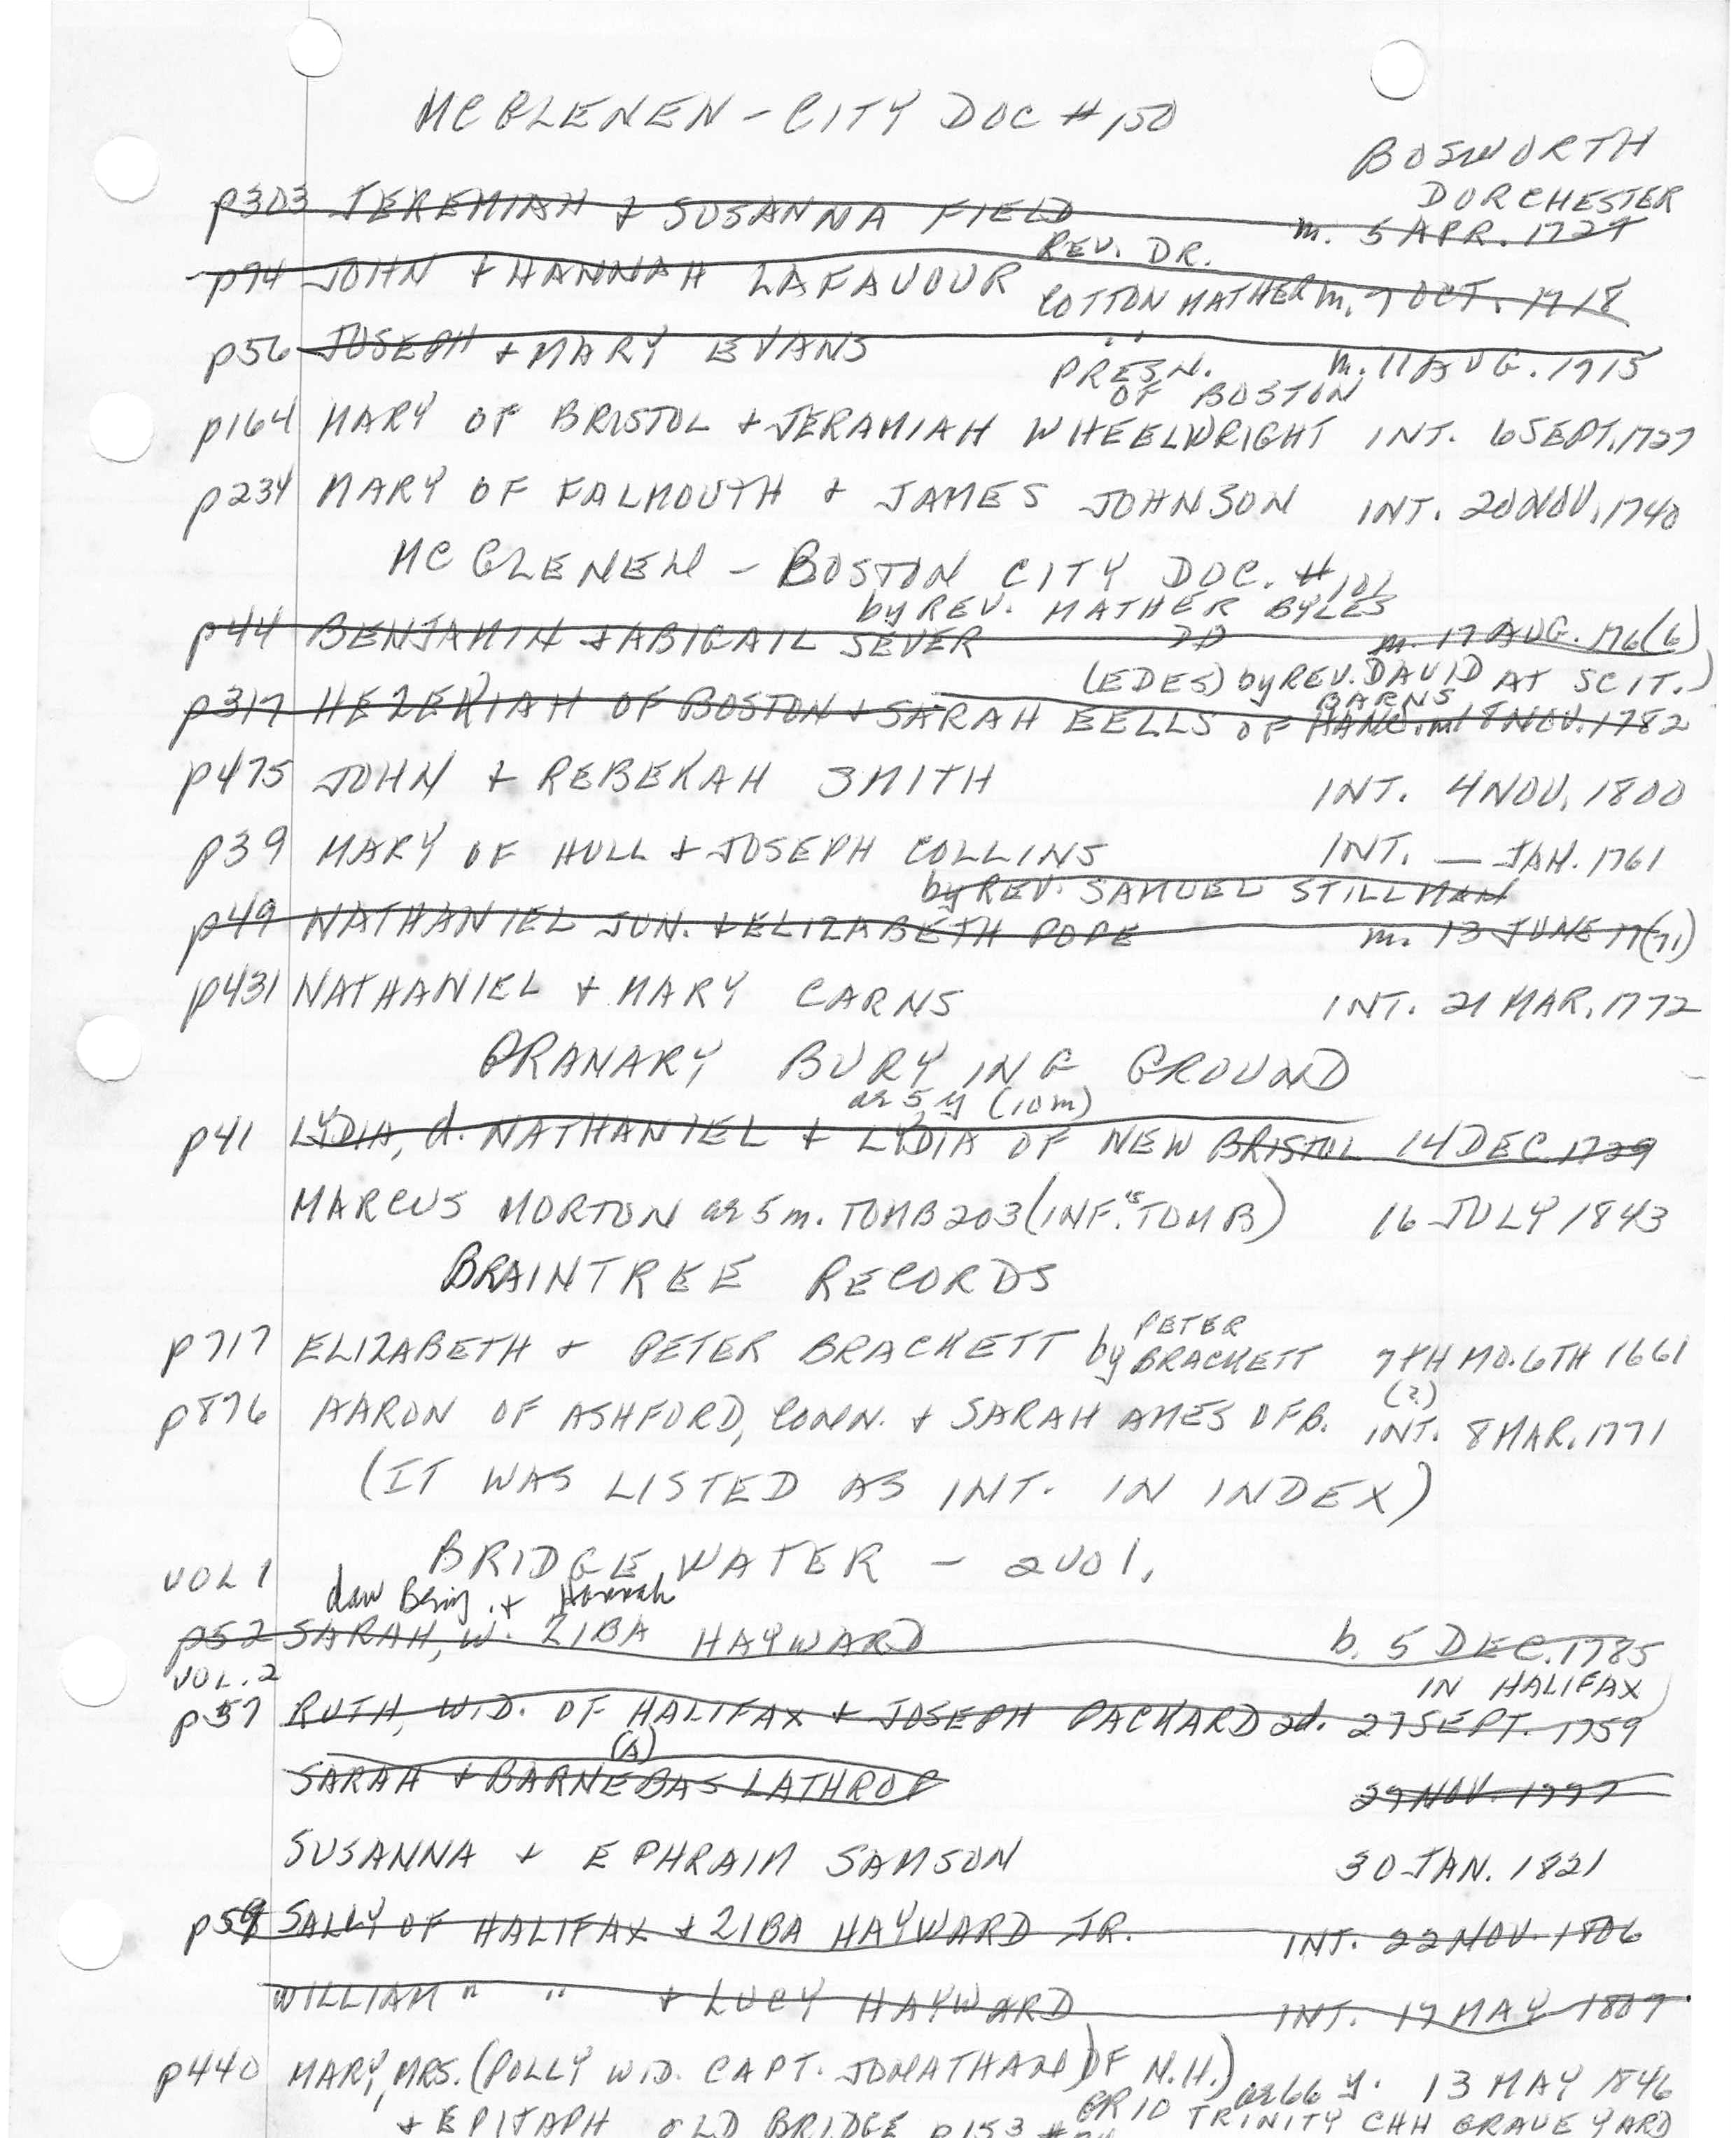 MCGLENEN - CITY DOC #150
BOSWORTH
DORCHESTER
p303 JEREMIAH & SUSANNA FIELD m. 5 APR. 1727
REV. DR.
p74 JOHN & HANNAH LAFAVOUR COTTON MATHER m. 7 OCT. 1718
p56 JOSEPH & MARY EVANS " PRESN. m. 11 AUG. 1715
OF BOSTON
p164 MARY OF BRISTOL & JERAMIAH WHEELWRIGHT INT. 6 SEPT. 1727
p234 MARY OF FALMOUTH & JAMES JOHNSON INT. 20 NOV. 1740
MCGLENEN - BOSTON CITY DOC. #101
by REV. MATHER BYLES
p44 BENJAMIN & ABIGAIL SEVER DD m. 17 AUG. 176(6)
(EDES) by REV. DAVID AT SCIT.)
BARNS
p317 HEZEKIAH OF BOSTON & SARAH EELLS OF HANO. m 18 NOV. 1782
p475 JOHN & REBEKAH SMITH INT. 4 NOV. 1800
p39 MARY OF HULL & JOSEPH COLLINS INT. — JAN. 1761
by REV. SAMUEL STILLMAN
p49 NATHANIEL JUN. & ELIZABETH POPE m. 13 JUNE 17(71)
p431 NATHANIEL & MARY CARNS INT. 21 MAR. 1772
GRANARY BURYING GROUND
ae 5 y (10m)
p41 LYDIA, d. NATHANIEL & LYDIA OF NEW BRISTOL 14 DEC 1729
MARCUS MORTON ae 5 m. TOMB 203 (INF.'S TOMB) 16 JULY 1843
BRAINTREE RECORDS
PETER
p717 ELIZABETH & PETER BRACKETT by BRACKETT 7TH MO. 6TH 1661
(?)
p876 AARON OF ASHFORD, CONN. & SARAH AMES OF B. INT. 8 MAR. 1771
(IT WAS LISTED AS INT. IN INDEX)
BRIDGEWATER - 2 vol.
VOL 1
dau Benj. & Hannah
p52 SARAH, W. ZIBA HAYWARD b. 5 DEC. 1785
VOL. 2
IN HALIFAX
p57 RUTH, WID. OF HALIFAX & JOSEPH PACKARD 2d. 27 SEPT. 1759
(A)
SARAH & BARNEBAS LATHROP 29 NOV. 1777
SUSANNA & EPHRAIM SAMSON 30 JAN. 1821
p59 SALLY OF HALIFAX & ZIBA HAYWARD JR. INT. 22 NOV. 1806
WILLIAM " " & LUCY HAYWARD INT. 17 MAY 1807
p440 MARY, MRS. (POLLY WID. CAPT. JONATHAN) OF N.H.) ae 66 y. 13 MAY 1846
GR 10 TRINITY CHH GRAVE YARD
& EPITAPH OLD BRIDGE p153